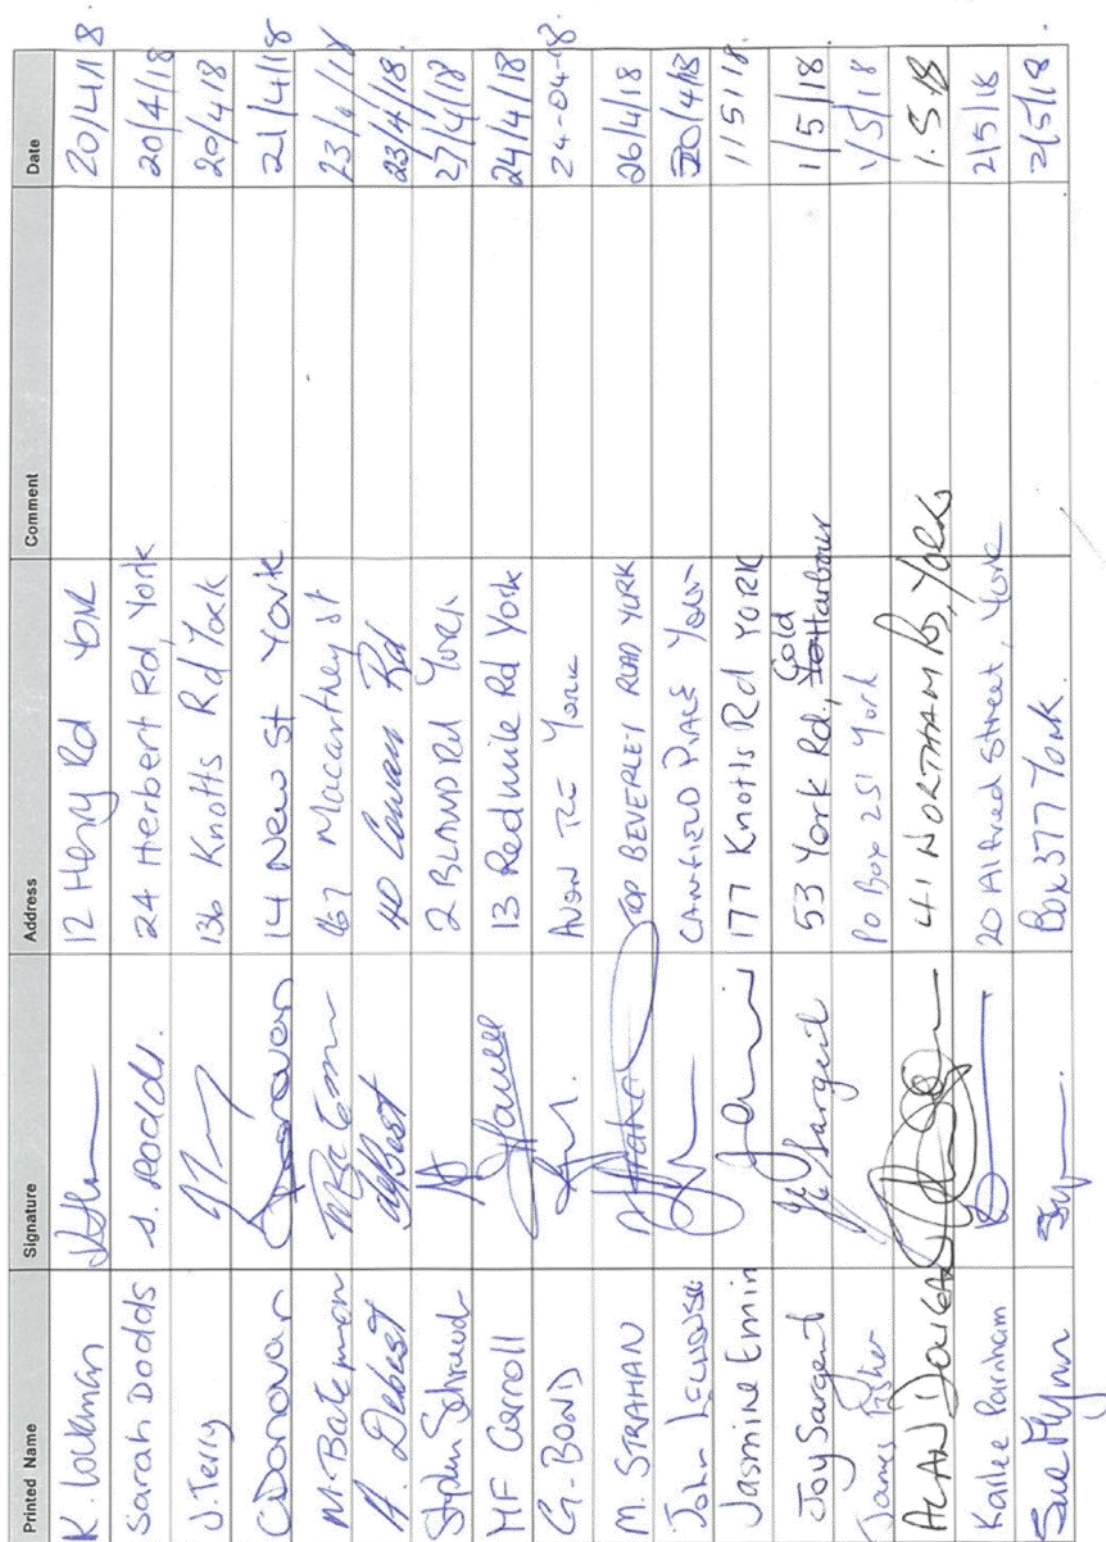 Printed Name Signature Address Comment Date
K. Lockman 12 Henry Rd York 20/4/18.
Sarah Dodds S. Dodds. 24 Herbert Rd, York 20/4/18
J. Terry 136 Knotts Rd York 20/4/18
C Donovan C Donovan 14 New St York 21/4/18
M. Bateman M Bateman 67 Macartney st 23/4/18
A. Debest A Debest 40 Cowan Rd 23/4/18.
Stephen 2 BLAND Rd York 27/4/18
MF Carroll 13 Redmile Rd York 24/4/18
G. BOND AVON TCE York 24-04-18.
M. STRAHAN TOP BEVERLEY ROAD YORK 26/4/18
John CANFIELD PLACE York 30/4/18
Jasmine Emin 177 Knotts Rd YORK 1/5/18.
Joy Sargent Sargent 53 York Rd, Cold Harbour 1/5/18
James Fisher PO Box 251 York 1/5/18
ALAN 41 NORTHAM RD, YORK 1.5.18
Kailee Parnham 20 Alfred Street, York 2/5/18
Sue Flynn Box 377 York. 2/5/18.